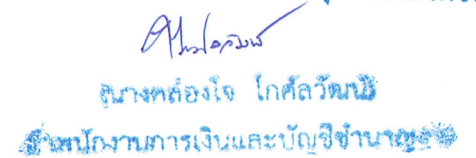 นางคล่องใจ โกศัลวัฒน์
เจ้าพนักงานการเงินและบัญชีชำนาญงาน